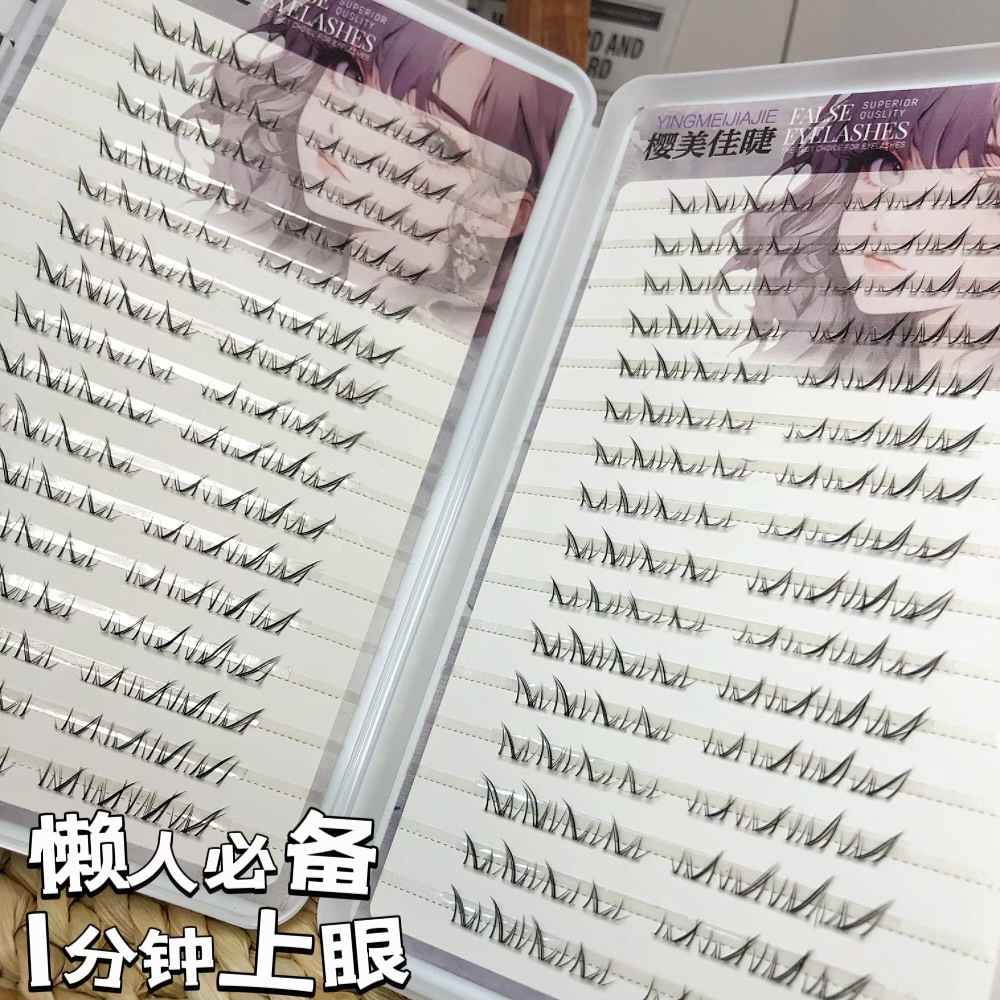 FALSE
EYELASHES
SUPERIOR
QUSLITY
CHOICE FOR EYELASHES
YINGMEIJIAJIE
樱美佳睫
FALSE
EYELASHES
SUPERIOR
QUSLITY
THE BEST CHOICE FOR EYELASHES
懒人必备
1分钟上眼